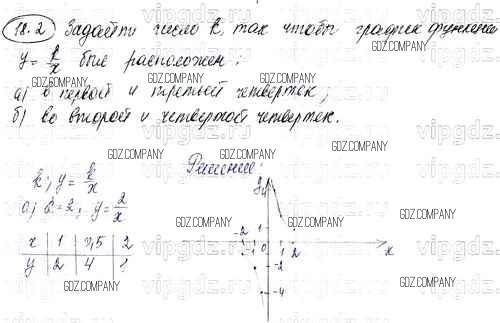 18.2 Задайти число k, так чтобы график функции
y = k/x был расположен:
а) в первой и третьей четвертях;
б) во второй и четвертой четвертях.
Решение:
k; y = k/x
а) k = 2; y = 2/x
x 1 0,5 2
y 2 4 1
y
4
-2 -1 0 1 2 x
1
-2
-4
GDZ.COMPANY
vipgdz.ru